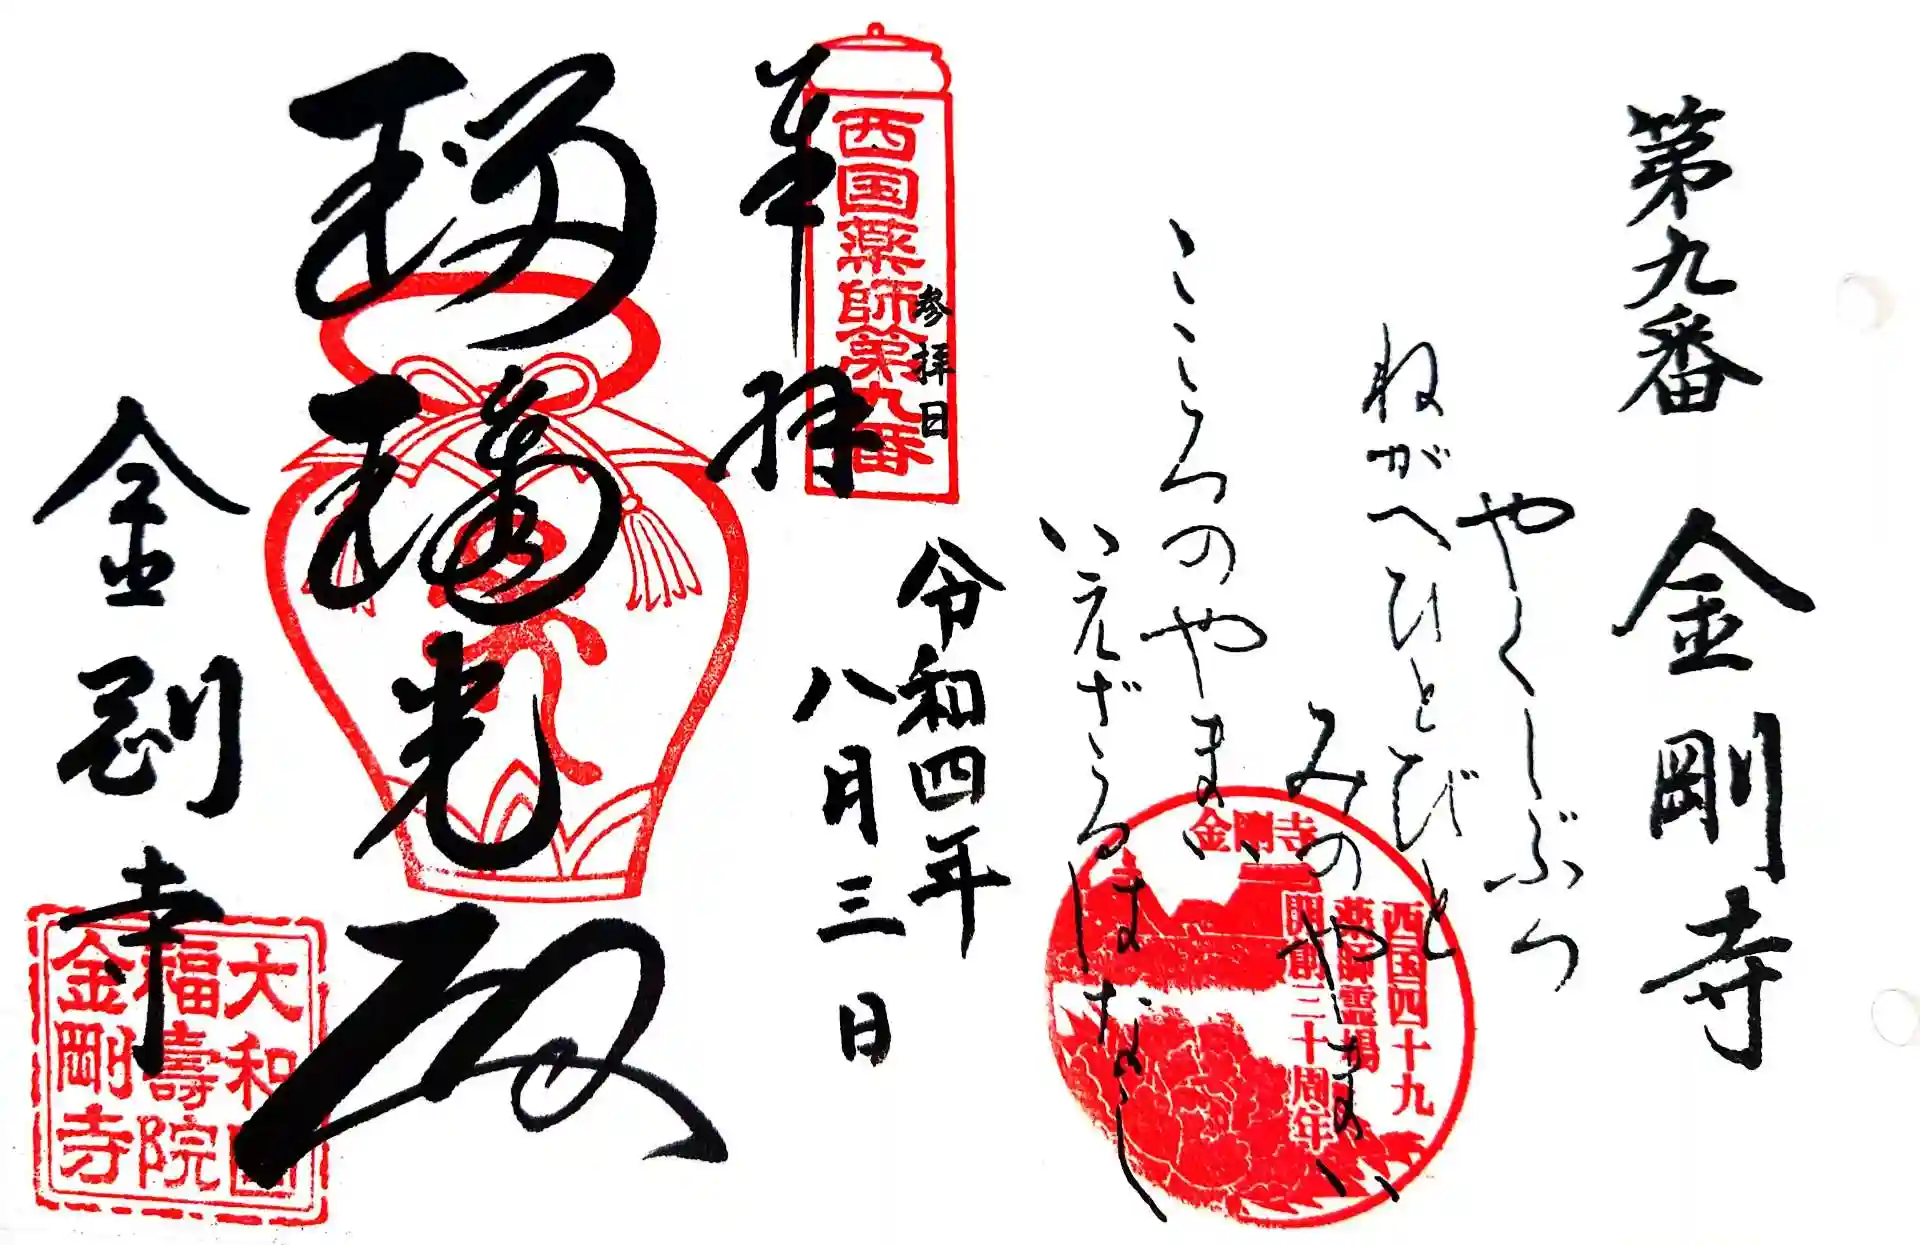 第九番 金剛寺
やくしぶつ
ねがへひとびと
みのやまい
こころのやまい
いえざるはなし
金剛寺
西国四十九
薬師霊場
開創三十周年
参拝日
令和四年
八月三日
西国薬師第九番
奉拝
瑠璃光殿
金剛寺
大和國
福壽院
金剛寺